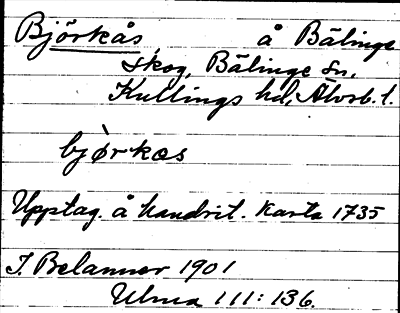 Björkås, å Bälinge
skog, Bälinge sn,
Kullings hd, Älvsb. l.
bjòrkas
Upptag. å handrit. karta 1735
I. Belanner 1901
Ulma 111:136.